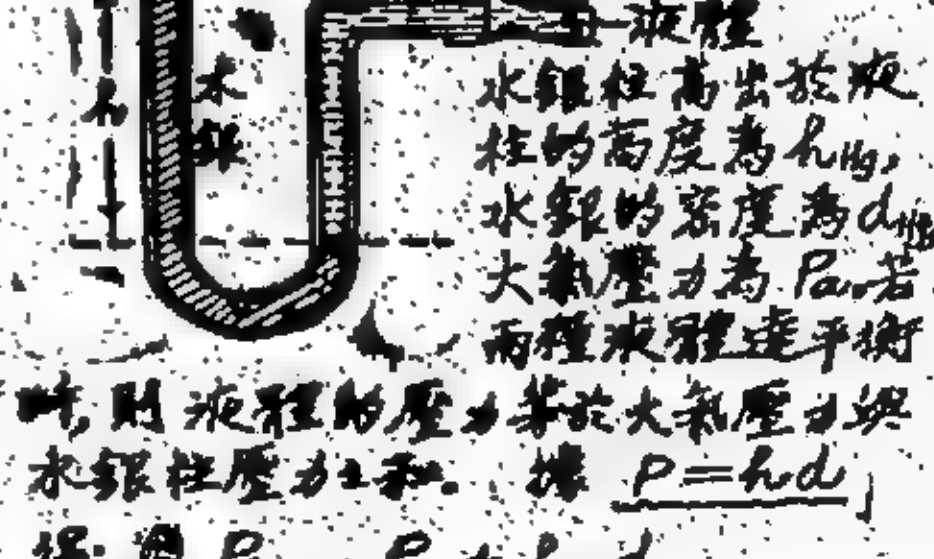 液體
h
水
銀
水銀柱高出於液
柱的高度為hHg,
水銀的密度為dHg
大氣壓力為Pa.若
兩種液體達平衡
時,則液體的壓力等於大氣壓力與
水銀柱壓力之和. 據 P=hd